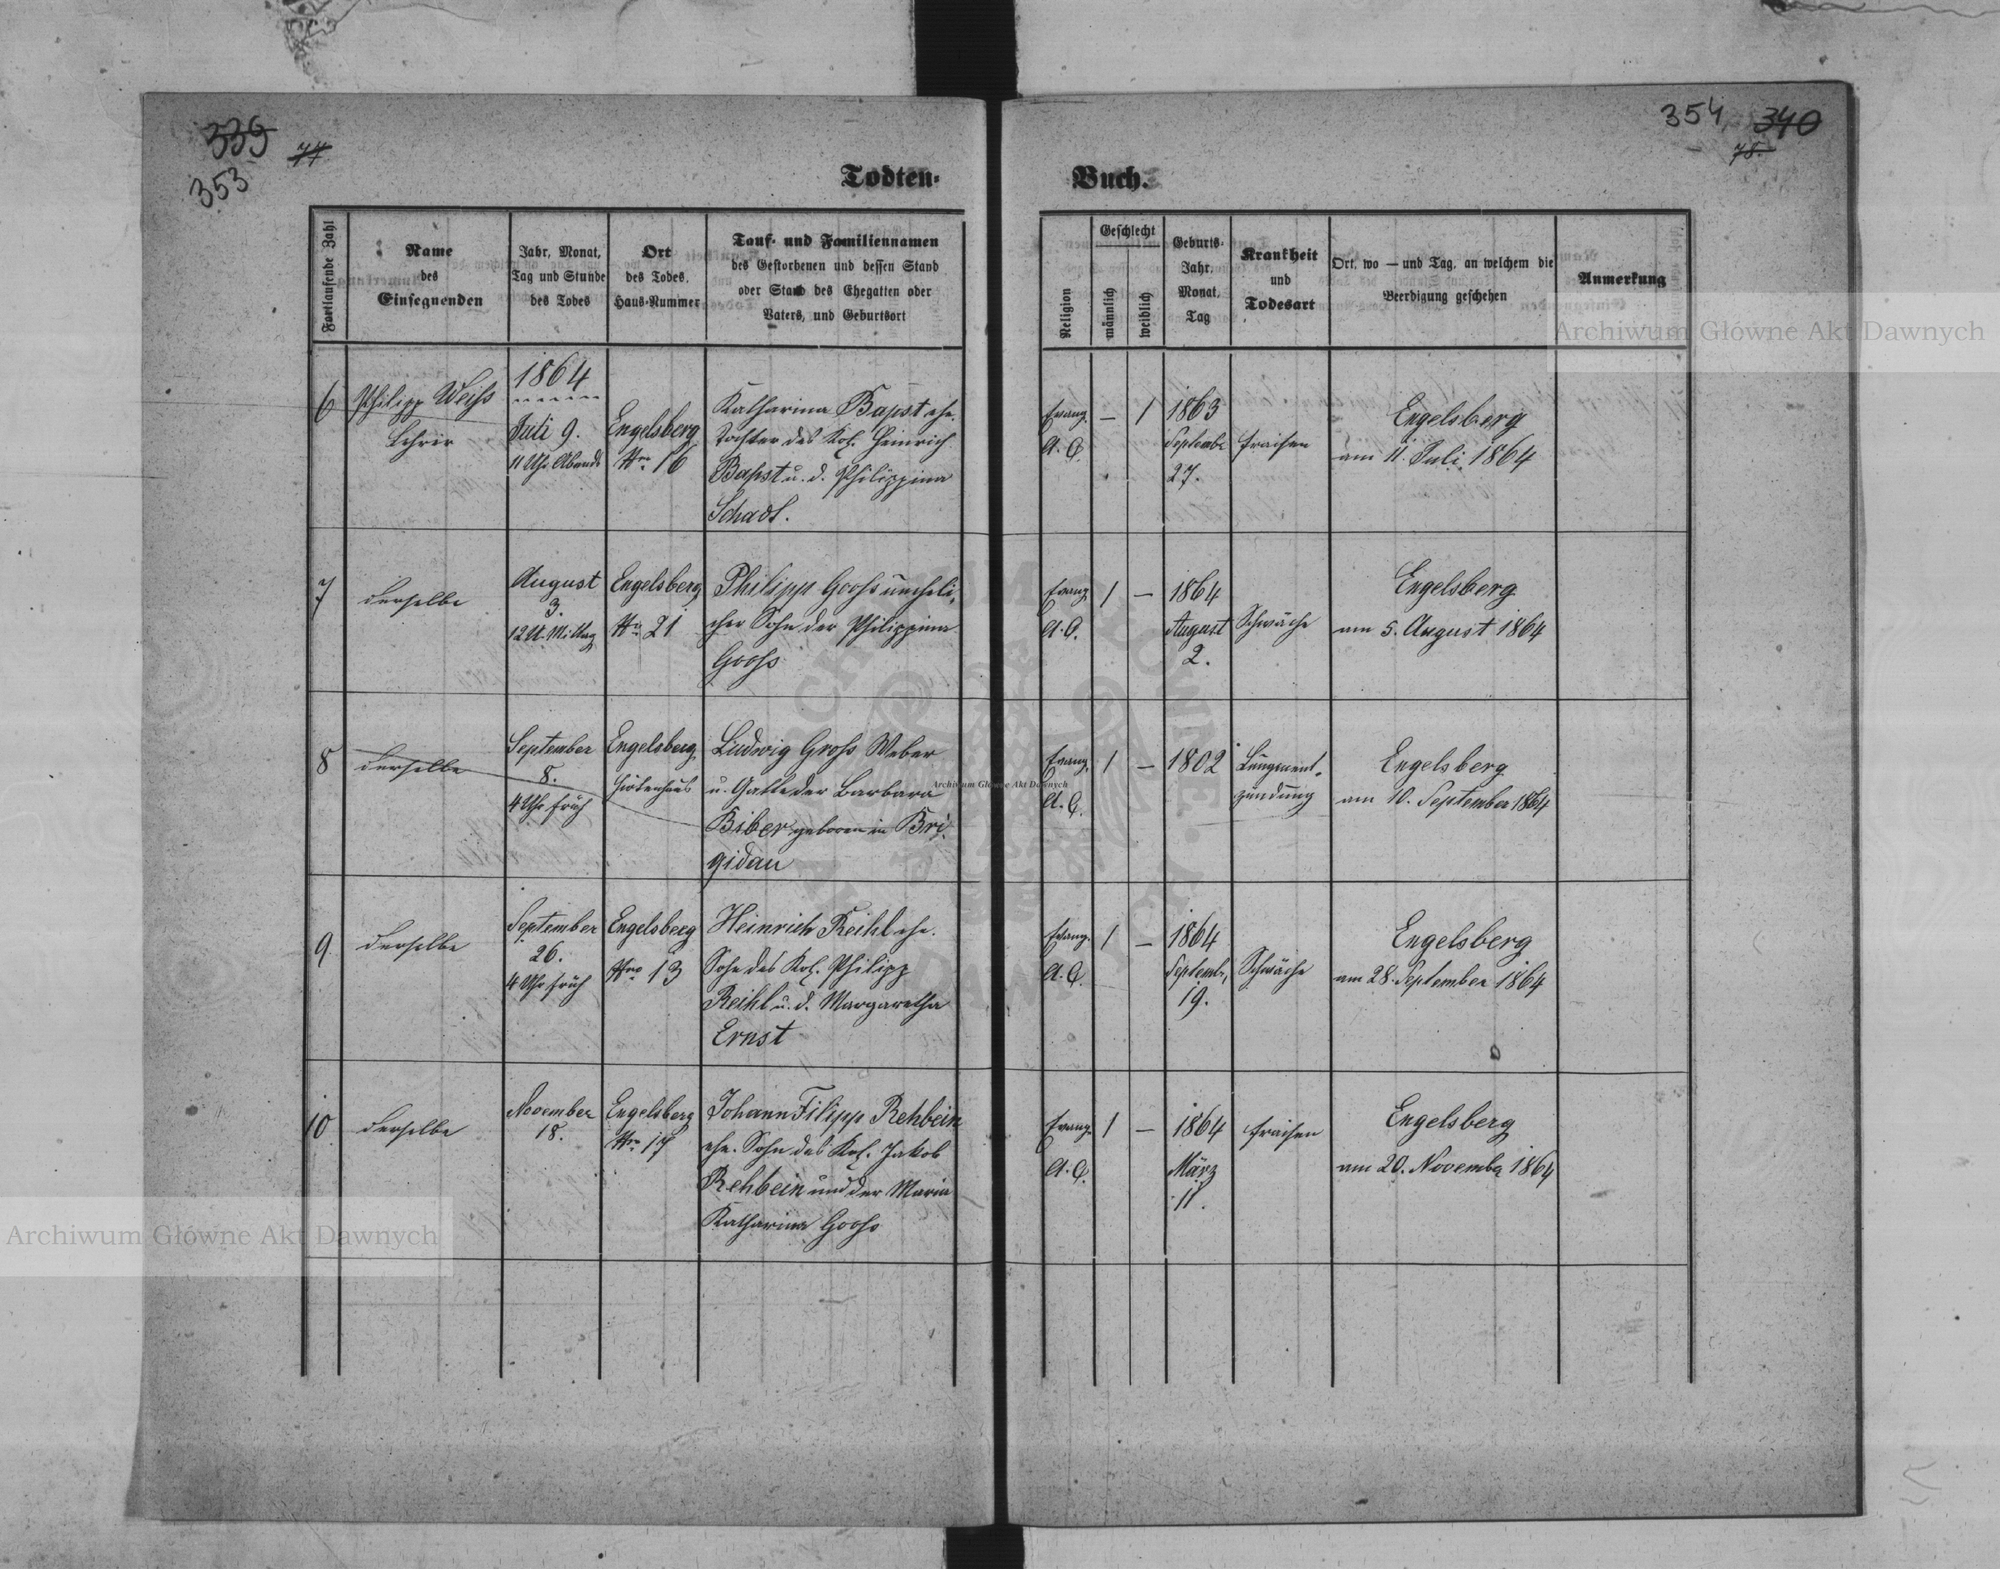 339
77
353
354
340
78.
Todten-
Buch.
Fortlaufende Zahl
Name
des
Einsegnenden
Jahr, Monat,
Tag und Stunde
des Todes
Ort
des Todes,
Haus-Nummer
Tauf- und Familiennamen
des Gestorbenen und dessen Stand
oder Stand des Ehegatten oder
Vaters, und Geburtsort
Religion
Geschlecht
männlich
weiblich
Geburts-
Jahr,
Monat,
Tag
Krankheit
und
Todesart
Ort, wo — und Tag, an welchem die
Beerdigung geschehen
Anmerkung
6
Philipp Weiss
Lehrer
1864
Juli 9.
11 Uhr Abends
Engelsberg
Nro 16
Katharina Bapst ehe.
Tochter des Kol. Heinrich
Bapst u. d. Philippina
Schadt.
Evang.
A. C.
— 1
1863
Septembr
27.
Fraisen
Engelsberg
am 11. Juli 1864
7
derselbe
August
3.
12 U. Mittag
Engelsberg
Nro 21
Philipp Goohs uneheli-
cher Sohn der Philippina
Goohs
Evang
A. C.
1 —
1864
August
2.
Schwäche
Engelsberg
am 5. August 1864
8
derselbe
September
8.
4 Uhr früh
Engelsberg
Hirtenhaus
Ludwig Grohs Weber
u. Gatte der Barbara
Biber geboren in Bri-
gidau
Evang.
A. C.
1 —
1802
Lungenent-
zündung
Engelsberg
am 10. September 1864
9
derselbe
September
26.
4 Uhr früh
Engelsberg
Nro 13
Heinrich Reihl ehe.
Sohn des Kol. Philipp
Reihl u. d. Margaretha
Ernst
Evang.
A. C.
1 —
1864
Septemb,
19.
Schwäche
Engelsberg
am 28. September 1864
10
derselbe
November
18.
Engelsberg
Nro 17
Johann Filipp Rehbein
ehe. Sohn des Kol. Jakob
Rehbein und der Maria
Katharina Goohs
Evang.
A. C.
1 —
1864
März
11.
Fraisen
Engelsberg
am 20. Novembr 1864
Archiwum Główne Akt Dawnych
Archiwum Główne Akt Dawnych
Archiwum Główne Akt Dawnych